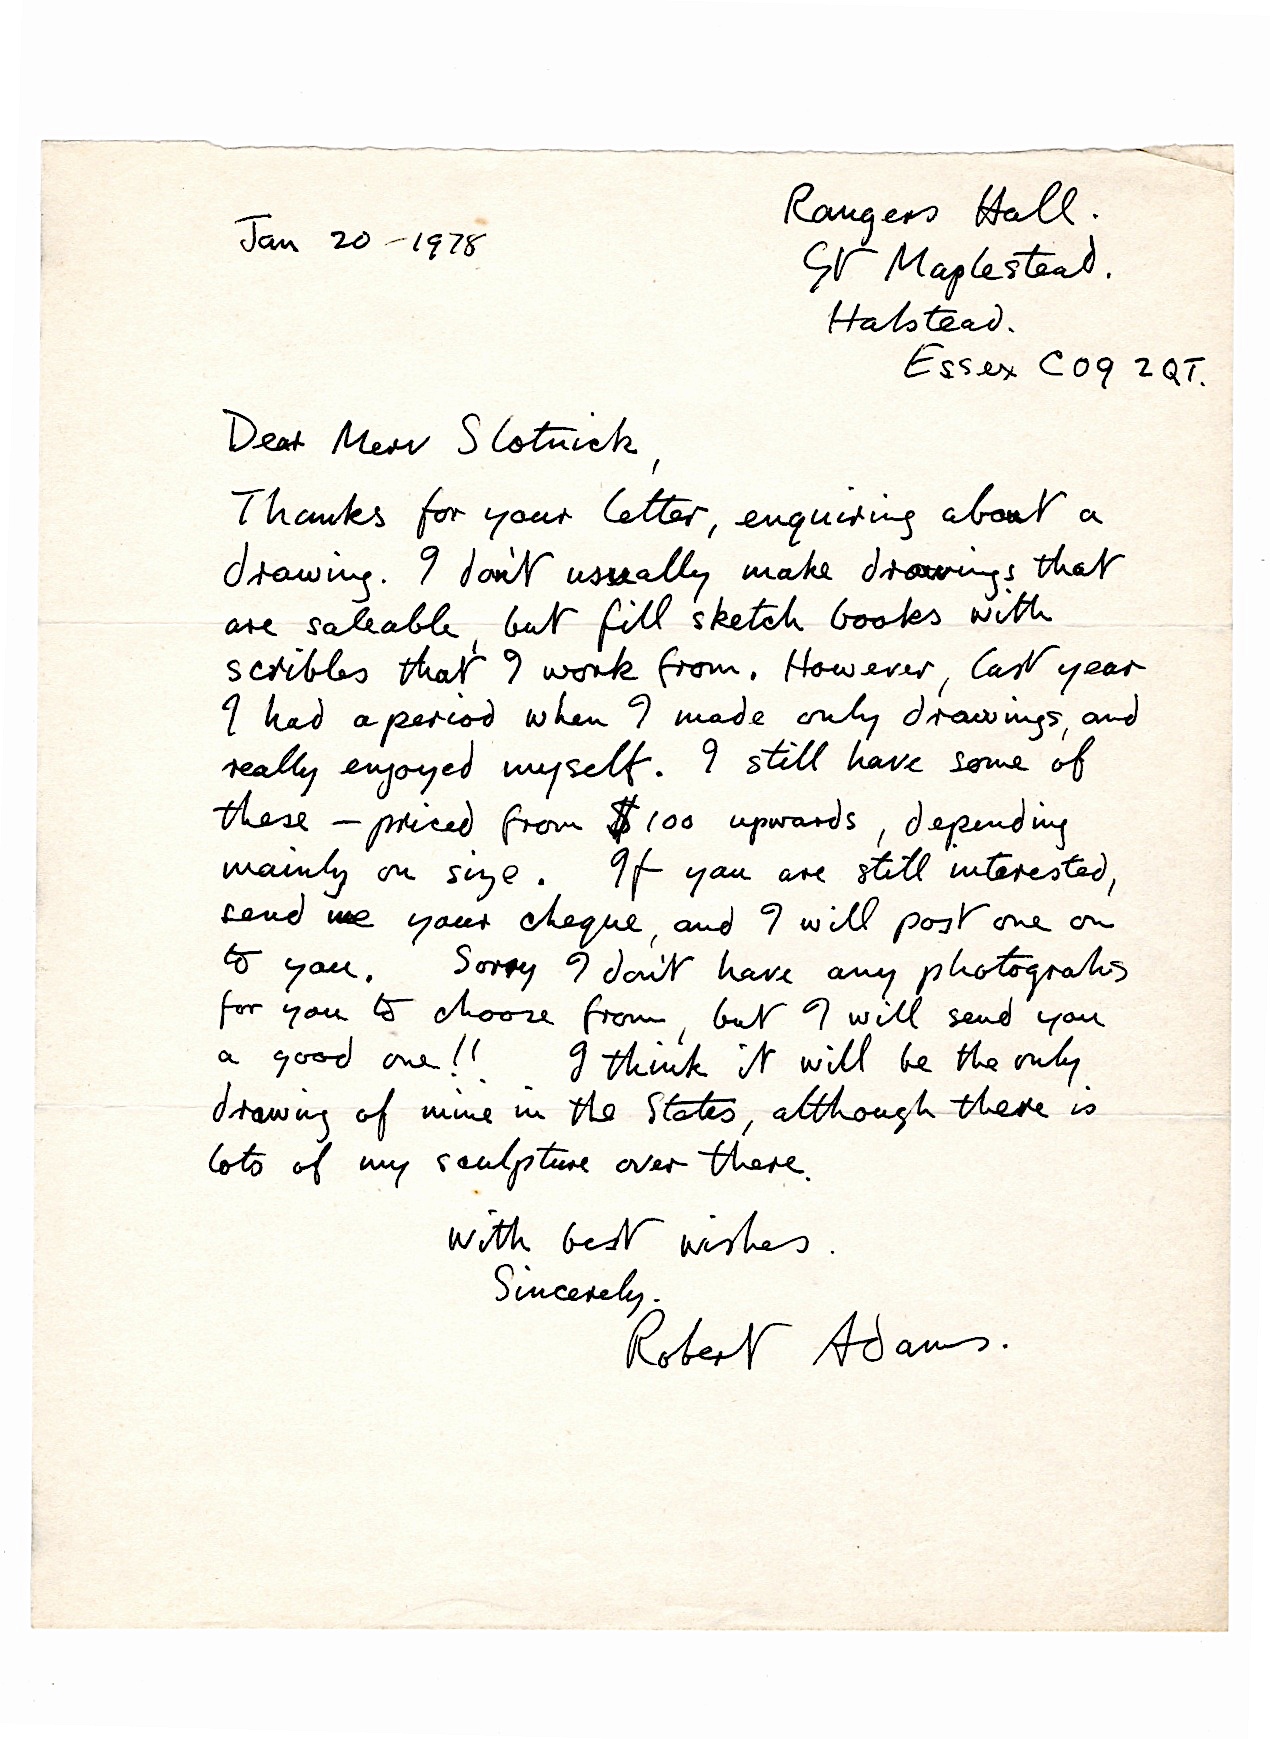 Jan 20 - 1978
Rangers Hall.
Gt Maplestead.
Halstead.
Essex CO9 2QT.
Dear Merv Slotnick,
Thanks for your letter, enquiring about a
drawing. I don't usually make drawings that
are saleable, but fill sketch books with
scribles that I work from. However, last year
I had a period when I made only drawings, and
really enjoyed myself. I still have some of
these – priced from $100 upwards, depending
mainly on size. If you are still interested,
send me your cheque, and I will post one on
to you. Sorry I don't have any photograhs
for you to choose from, but I will send you
a good one!! I think it will be the only
drawing of mine in the States, although there is
lots of my sculpture over there.
with best wishes.
Sincerely.
Robert Adams.